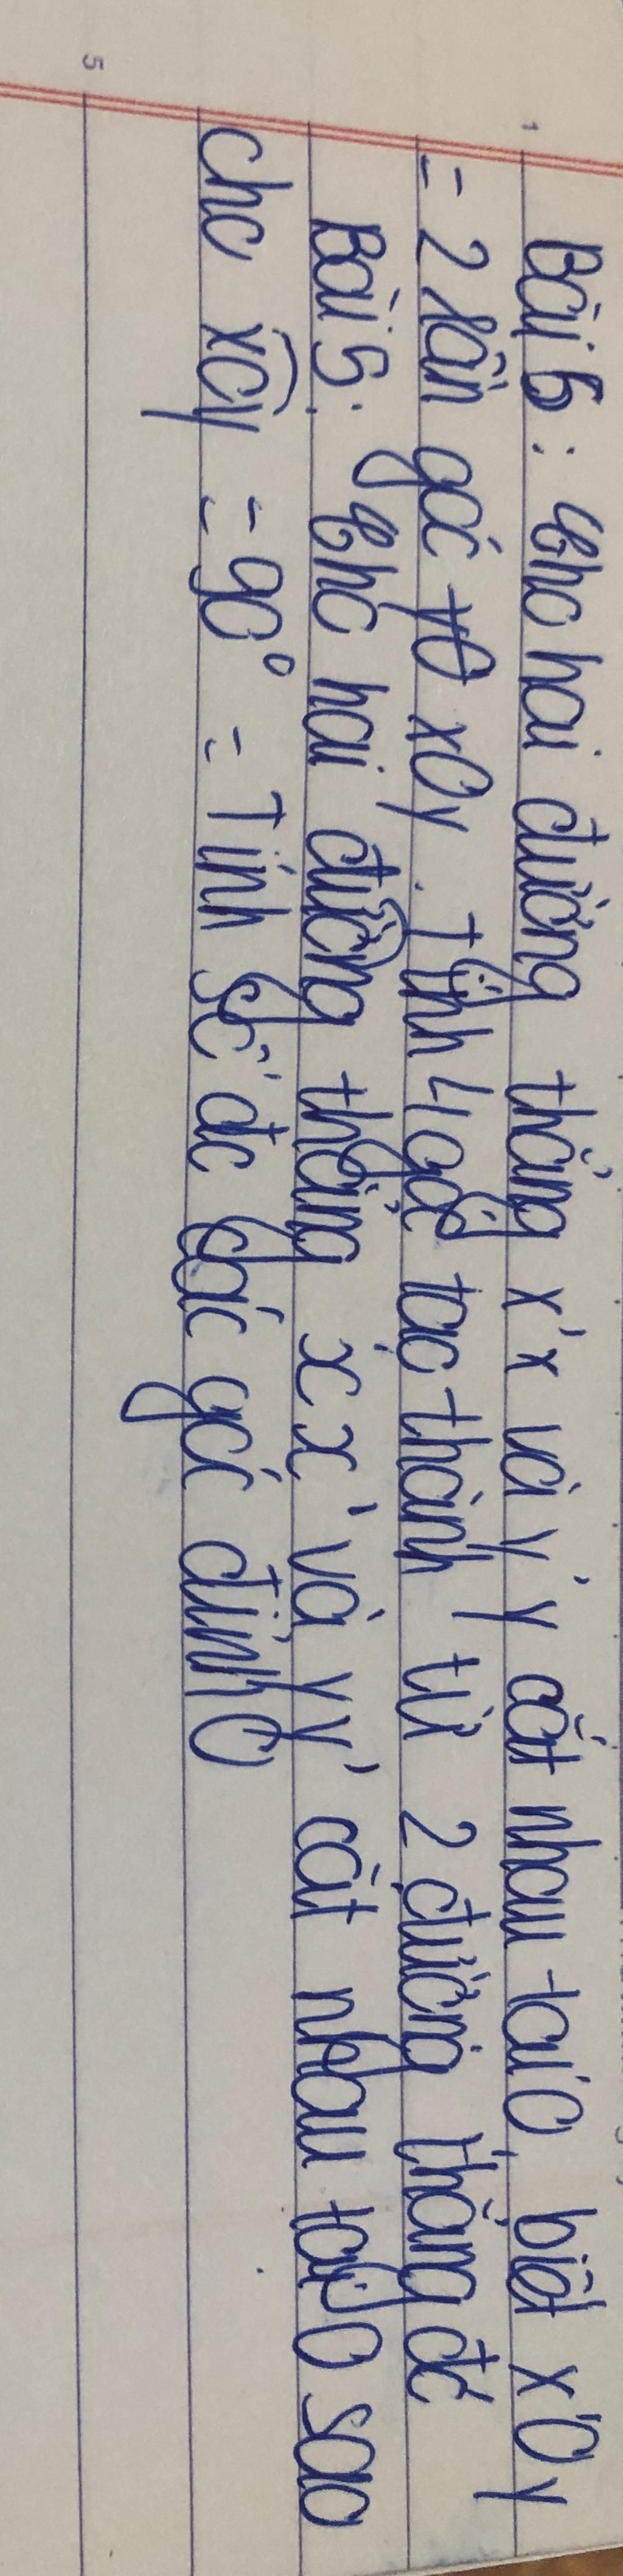 Bài 5: Cho hai đường thẳng x'x và y'y cắt nhau tại O, biết x'Oy
= 2 lần góc xOy. Tính 4 góc tạo thành từ 2 đường thẳng đó
Bài 5: Cho hai đường thẳng xx' và yy' cắt nhau tại O sao
cho xOy = 90° = Tính số đo các góc đỉnh O